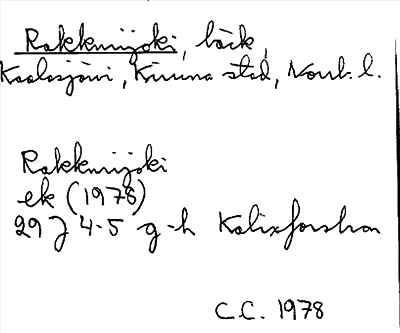 Rakkurijoki, bäck,
Kaalasjärvi, Kiruna stad, Norrb. l.
Rakkurijoki
ek (1978)
29 J 4-5 g-h Kalixforsbron
C.C. 1978